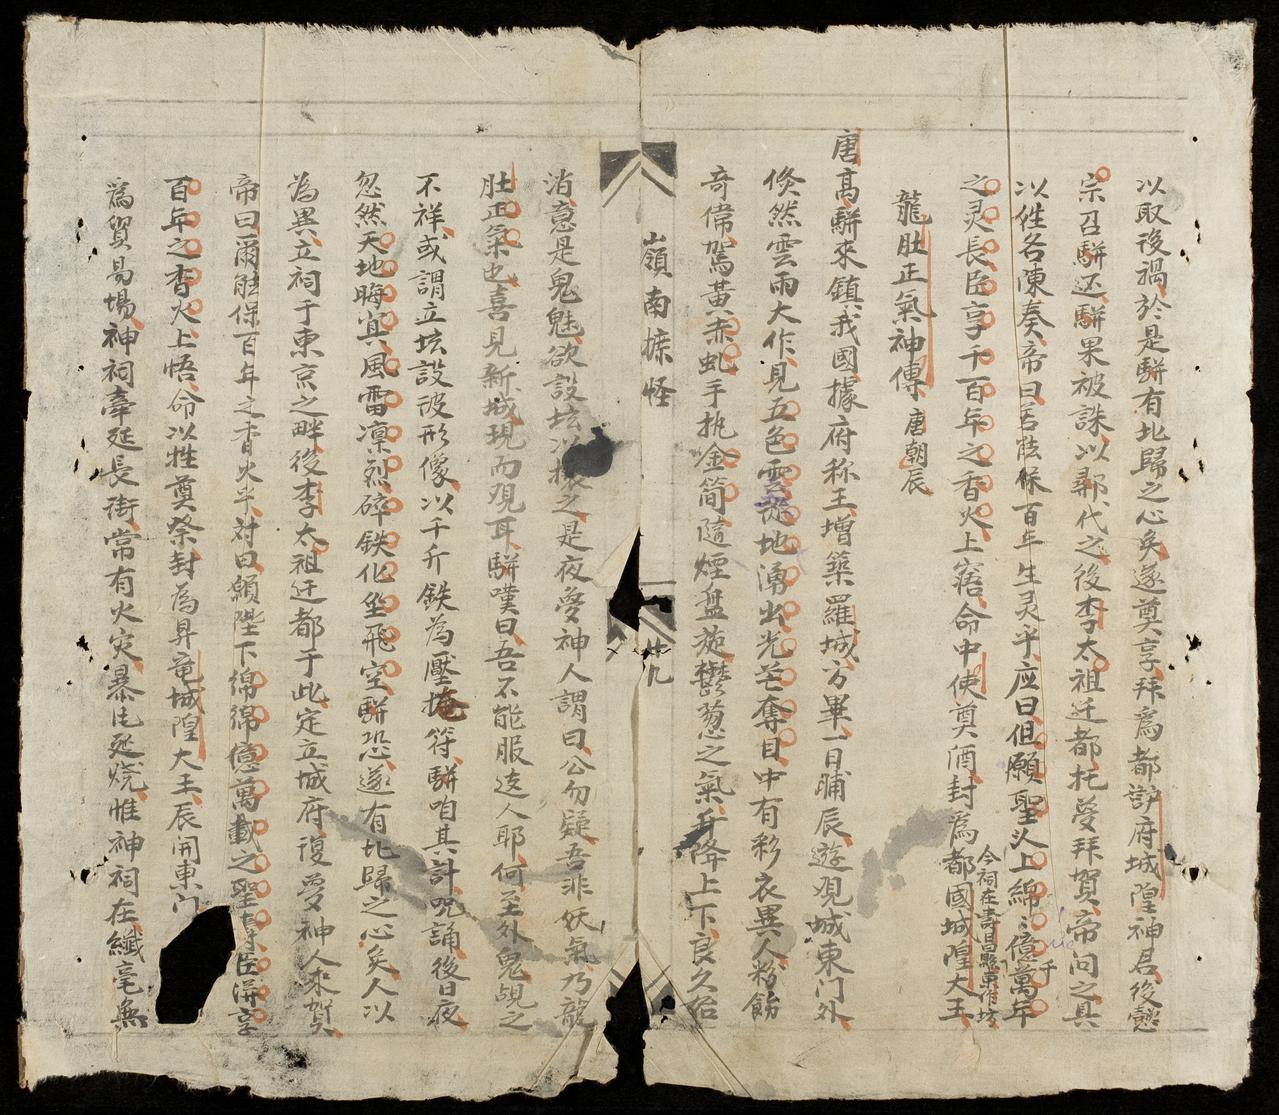 以取後禍於是駢有北歸之心矣遂奠享拜為都護府城隍神君後懿
宗召駢还駢果被誅以鄩代之後李太祖迁都托夢拜賀帝问之具
以姓名陳奏帝曰君能保百年生灵乎应曰但願聖上綿〻億萬年千
之灵長臣享千百年之香火上寤命中使奠酒封為都國城隍大王
今祠在壽昌縣東作坊
龍肚正氣神傳 唐朝辰
唐高駢來鎮我國據府称王增築羅城方畢一日晡辰遊观城東门外
倐然雲雨大作見五色雲從地湧出光芒奪目中有彩衣異人粉飾
奇偉駕黃赤虬手执金筒隨煙盘旋鬱葱之氣升降上下良久
嶺南摭怪
消意是鬼魅欲設坛以之是夜夢神人謂曰公勿疑吾非妖氣乃龍
肚正氣也喜見新城現而观耳駢嘆曰吾不能服远人耶何至外鬼覘之
不祥或謂立坛設彼形像以千斤鉄為壓掩符駢咱其計呪誦後日夜
忽然天地晦冥風雷凛烈碎鉄化坐飛空駢恐遂有北歸之心矣人以
為異立祠于東京之畔後李太祖迁都于此定立城府復夢神人來賀
帝曰爾能保百年之香火乎对曰願陛下綿綿億萬載之聖臣享
百年之香火上悟命以牲奠祭封為昇竜城隍大王辰闹東门
為貿易場神祠牽延長街常有火灾暴风延燒惟神祠在纖毫無